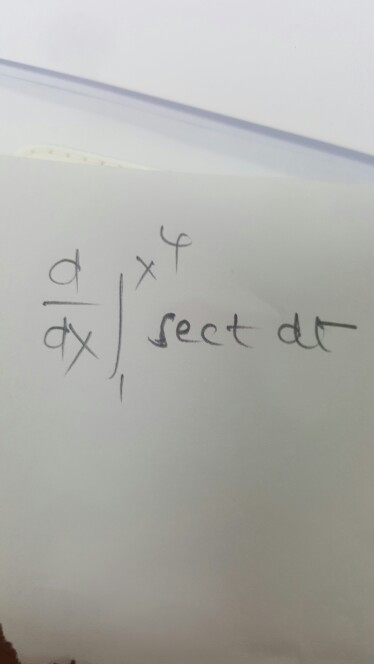 d/dx ∫₁^{x⁴} sect dt